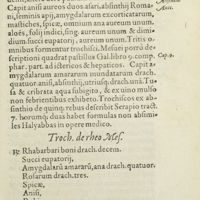 Auic.
piunt anisi aureos duos, asari, absinthij Roma
ni, seminis apij, amygdalarum excorticatarum,
mastiches, spicæ, omnium ana aureum unum,
aloës, folij indici, singul. aureum unum & dimi-
dium, succi eupatorij, aureum unum. Tritis o-
mnibus formentur trochisci. Mesuei porrò de-
scriptioni quadrat pastillus Gal. libro 9. comp. Cap. 9.
phar. part. ad ictericos & hepaticos. Capita-
mygdalarum amararum mundatarum drach.
quatuor anisi, absinthij, utriusq; drach. unā. Tu-
sa & cribrata aqua subigito, & ex uino mulso
non febrientibus exhibeto. Trochiscos ex ab-
sinthio de quinq; rebus describit Serapio tract.
7. horumq; duas habet formulas non absimi-
les Halyabbas in opere medico.
Troch. de rheo Mes.
℞ Rhabarbari boni drach. decem.
Succi eupatorij,
Amygdalarū amararū, ana drach. quatuor.
Rosarum drach. tres.
Spicæ,
Anisi,